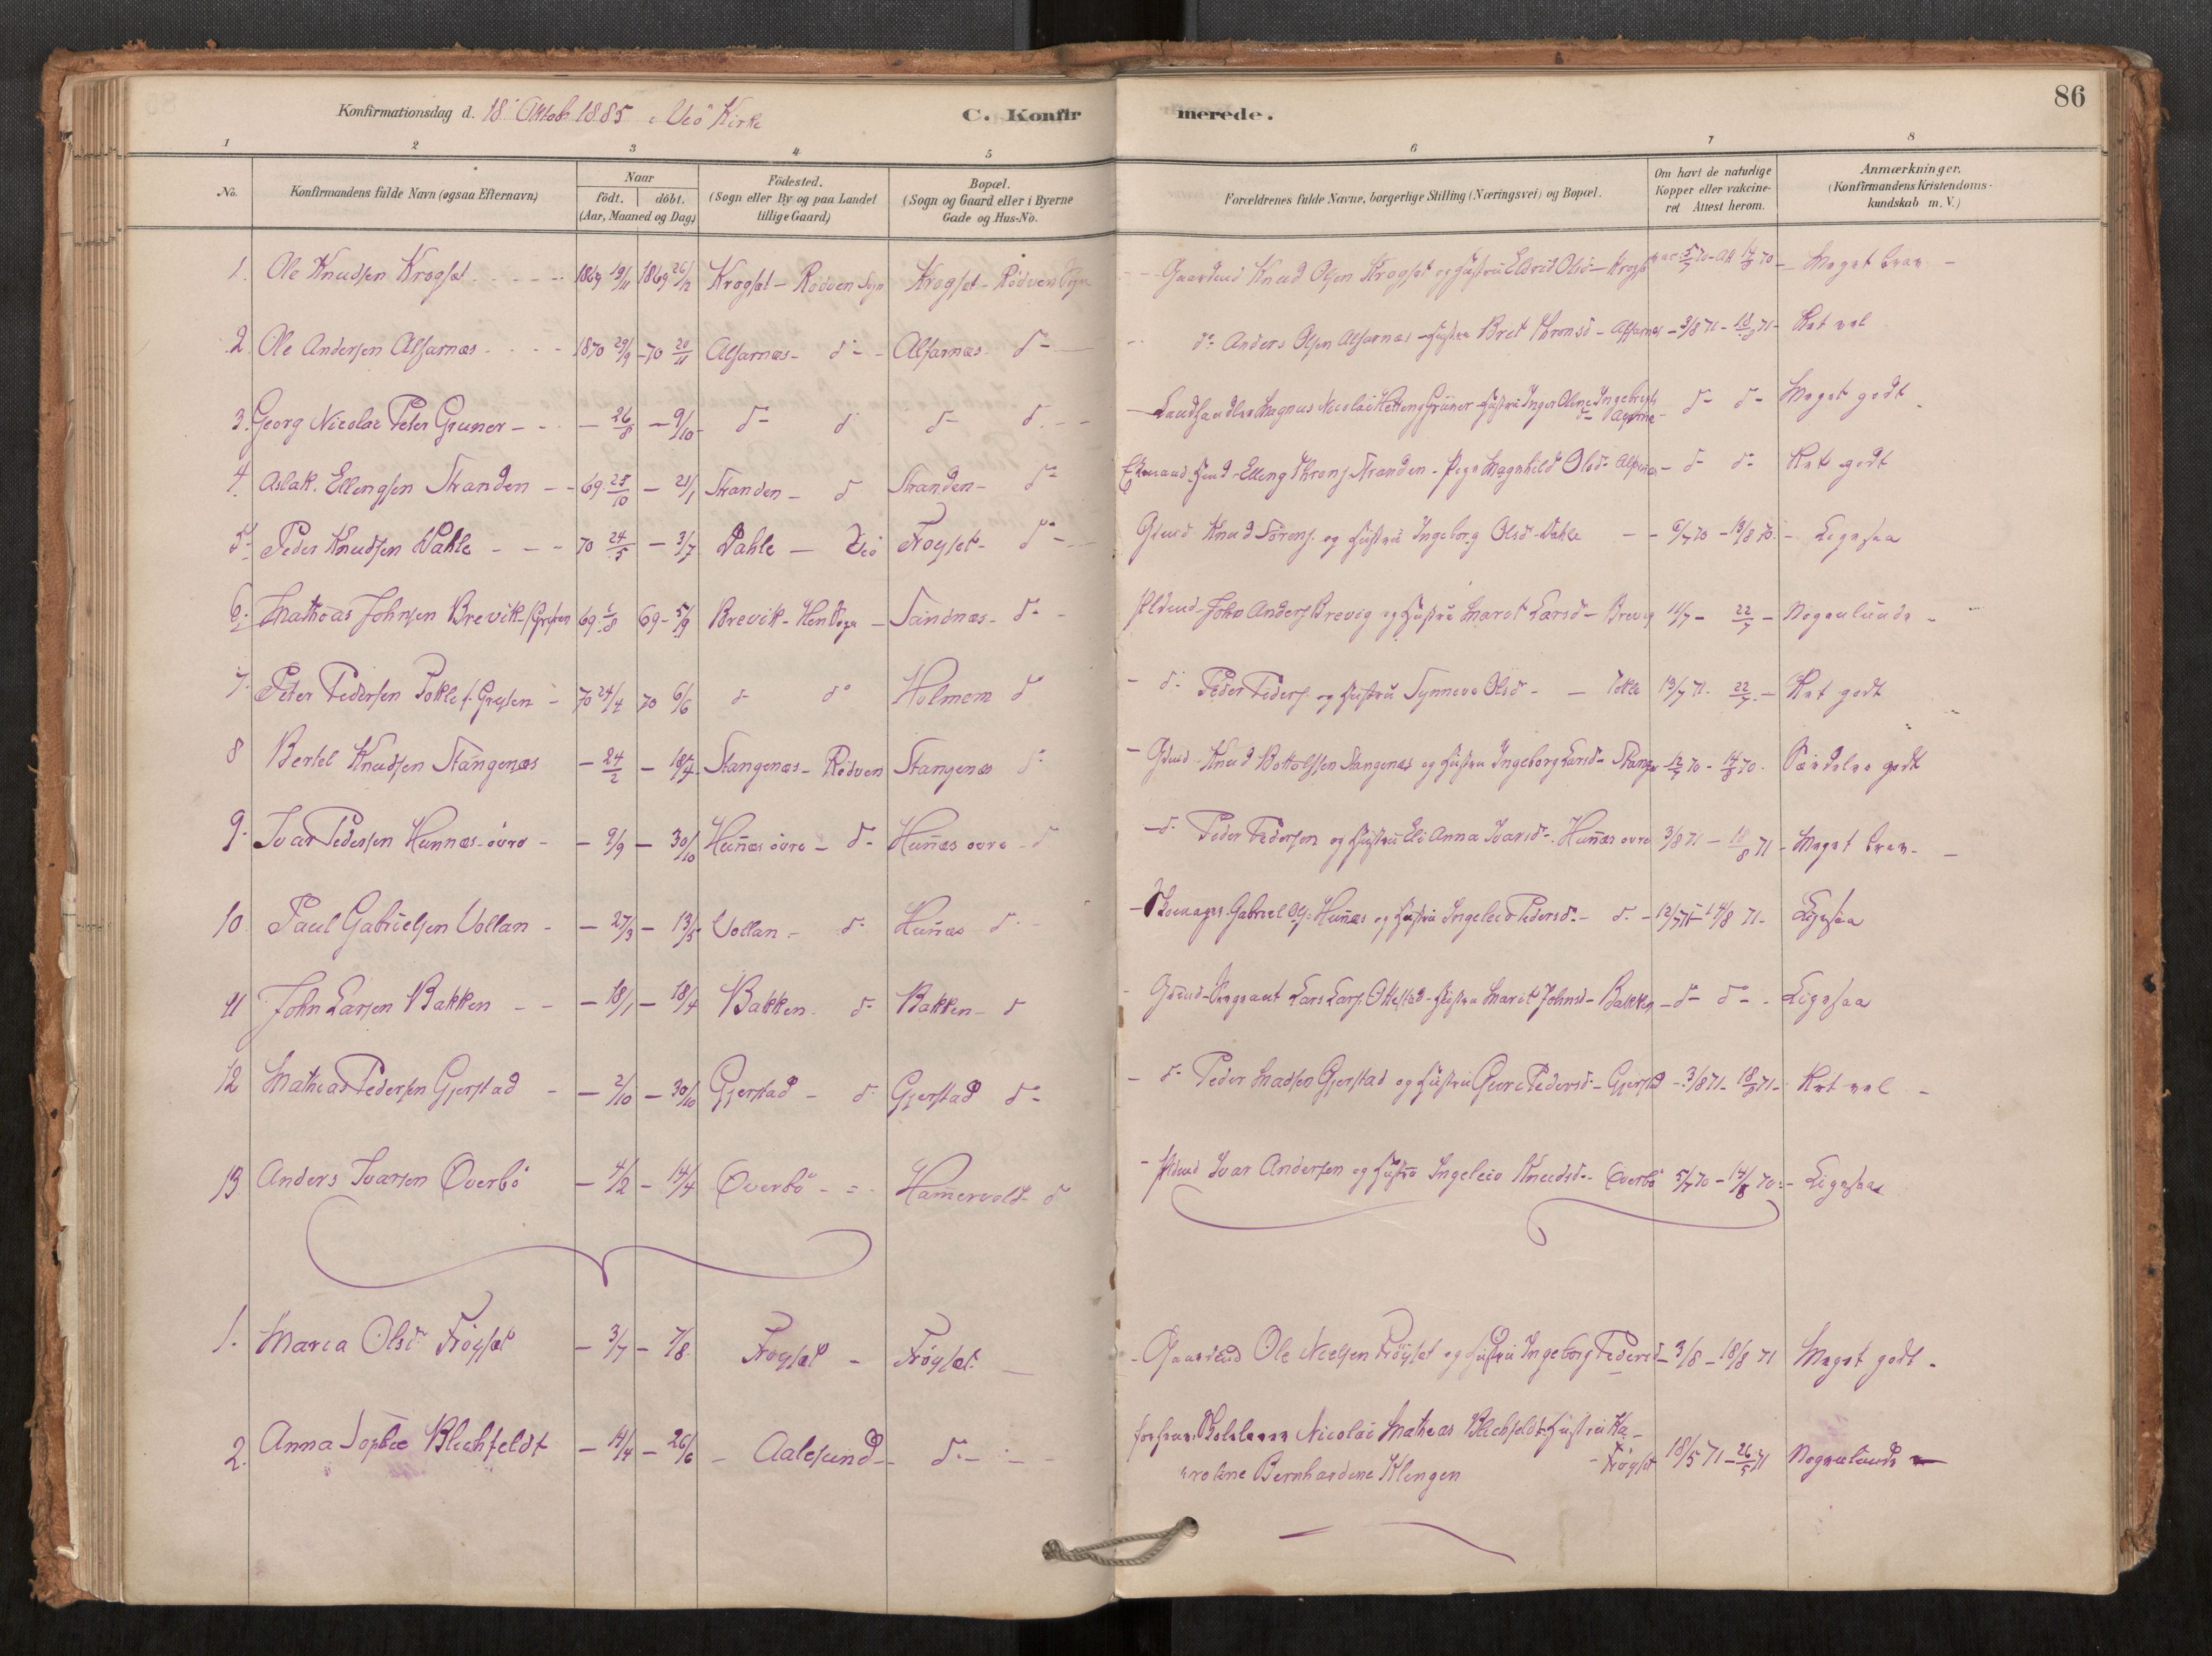 86
Konfirmationsdag d. 18 Oktob 1885 i Veö Kirke
C. Konfirmerede.
1 2 3 4 5 6 7 8
No.
Konfirmandens fulde Navn (ogsaa Efternavn)
Naar
födt. döbt.
(Aar, Maaned og Dag)
Födested.
(Sogn eller By og paa Landet
tillige Gaard)
Bopæl.
(Sogn og Gaard eller i Byerne
Gade og Hus-No.
Forældrenes fulde Navne, borgerlige Stilling (Næringsvei) og Bopæl.
Om havt de naturlige
Kopper eller vakcine-
ret Attest herom.
Anmærkninger.
(Konfirmandens Kristendoms-
kundskab m. V.)
1. Ole Knudsen Krogset 1869 19/11 1869 26/12 Krogset - Rödven Sogn Krogset - Rödven Sogn Gaardmd Knud Olsen Krogset og Hustru Eldrid Olsd - 5/7 70 - Att 14/8 70 - Meget brav -
2. Ole Andersen Alfarnæs 1870 29/9 - 70 20/11 Alfarnæs - do - Alfarnæs do - do Anders Olsen Alfarnæs - Hustru Bret Thronsd - Alfarnæs - 3/8 71 - 18/8 71 - Ret vel
3. Georg Nicolai Peter Gruner - - 26/8 - 9/10 - do do do do - Landhandler Magnus Nicolai Grüner - Hustru Inger Oline Ingebrigts - do do - Meget godt
4. Aslak Ellingsen Stranden - 69 25/10 - 21/1 Stranden - do Stranden - do Elling Strands Stranden - Pige Magnhild Olsd - do do Ret godt
5. Peder Knudsen Dahle - - - 70 24/5 - 3/7 Dahle - Veö Fröyset - do Gdmd Knud Sörens. og Hustru Ingeborg Olsd Dahle - 6/7 70 - 13/8 70 - Ligesaa
6. Mathias Johnsen Brevik 69 1/8 69 - 5/9 Brevik - Sandnæs - do - Pldmd John Anders Brevig og Hustru Marit Larsd - Brevig 11/7 - 22/7 - Nogenlunde -
7. Peter Pedersen Tokle 70 24/4 70 6/6 do do Holmem do - do Peder Peders. og Hustru Synneve Olsd - Tokle 13/7 71 - 22/7 - Ret godt
8 Bertel Knudsen Stangenæs - 24/2 - 18/4 - Stangenæs - Rödven Stangenæs do - Gdmd Knud Bottolfsen Stangenæs og Hustru Ingeborg Larsd - 12/7 70 - 14/8 70 - Særdeles godt
9. Ivar Pedersen Hunnæs-övre - - 9/9 - 30/10 Hunæs övre - do - Hunæs övre - do - do Peder Pedersen og Hustru Eli Anna Ivarsd - Hunæs övre 3/8 71 - 18/8 71 - Meget brav -
10 Paul Gabrielsen Vollan - - 27/3 - 13/5 Vollan - do - Hunæs do - Skomager Gabriel Ols. Hunæs og Hustru Ingeleiv Pedersd - do - 12/7 71 - 14/8 71 - Ligesaa
11 John Larsen Bakken - - 18/1 - 18/4 Bakken - do Bakken - do - Gdmd - Sergeant Lars Lars. Ottestad - Hustru Marit Johnsd - Bakken - do do - Ligesaa
12 Mathias Pedersen Gjerstad - - 2/10 - 30/10 Gjerstad - do Gjerstad do - - do Peder Madsen Gjerstad og Hustru Guri Pedersd - Gjerstad - 3/8 71 - 18/8 71 - Ret vel -
13 Anders Ivarsen Overbö - 4/2 - 14/4 Overbö - = - Hamervoldt do - Pldmd Ivar Andersen og Hustru Ingeleiv Knudsd - Overbö 5/7 70 - 14/8 70 - Ligesaa
1. Maria Olsd Fröyset - 3/7 - 7/8 Fröyset - Fröyset - - Gaardmd Ole Nielsen Fröyset og Hustru Ingeborg Pedersd - 3/8 - 18/8 71 Meget godt -
2. Anna Sophie Blichfeldt - 14/4 - 26/6 - Aalesund - do - Nicolai Mathias Blichfeldt - Hustru Ka-
roline Bernhardine Klingen - Fröyset 18/5 71 - 26/5 71 Nogenlunde -